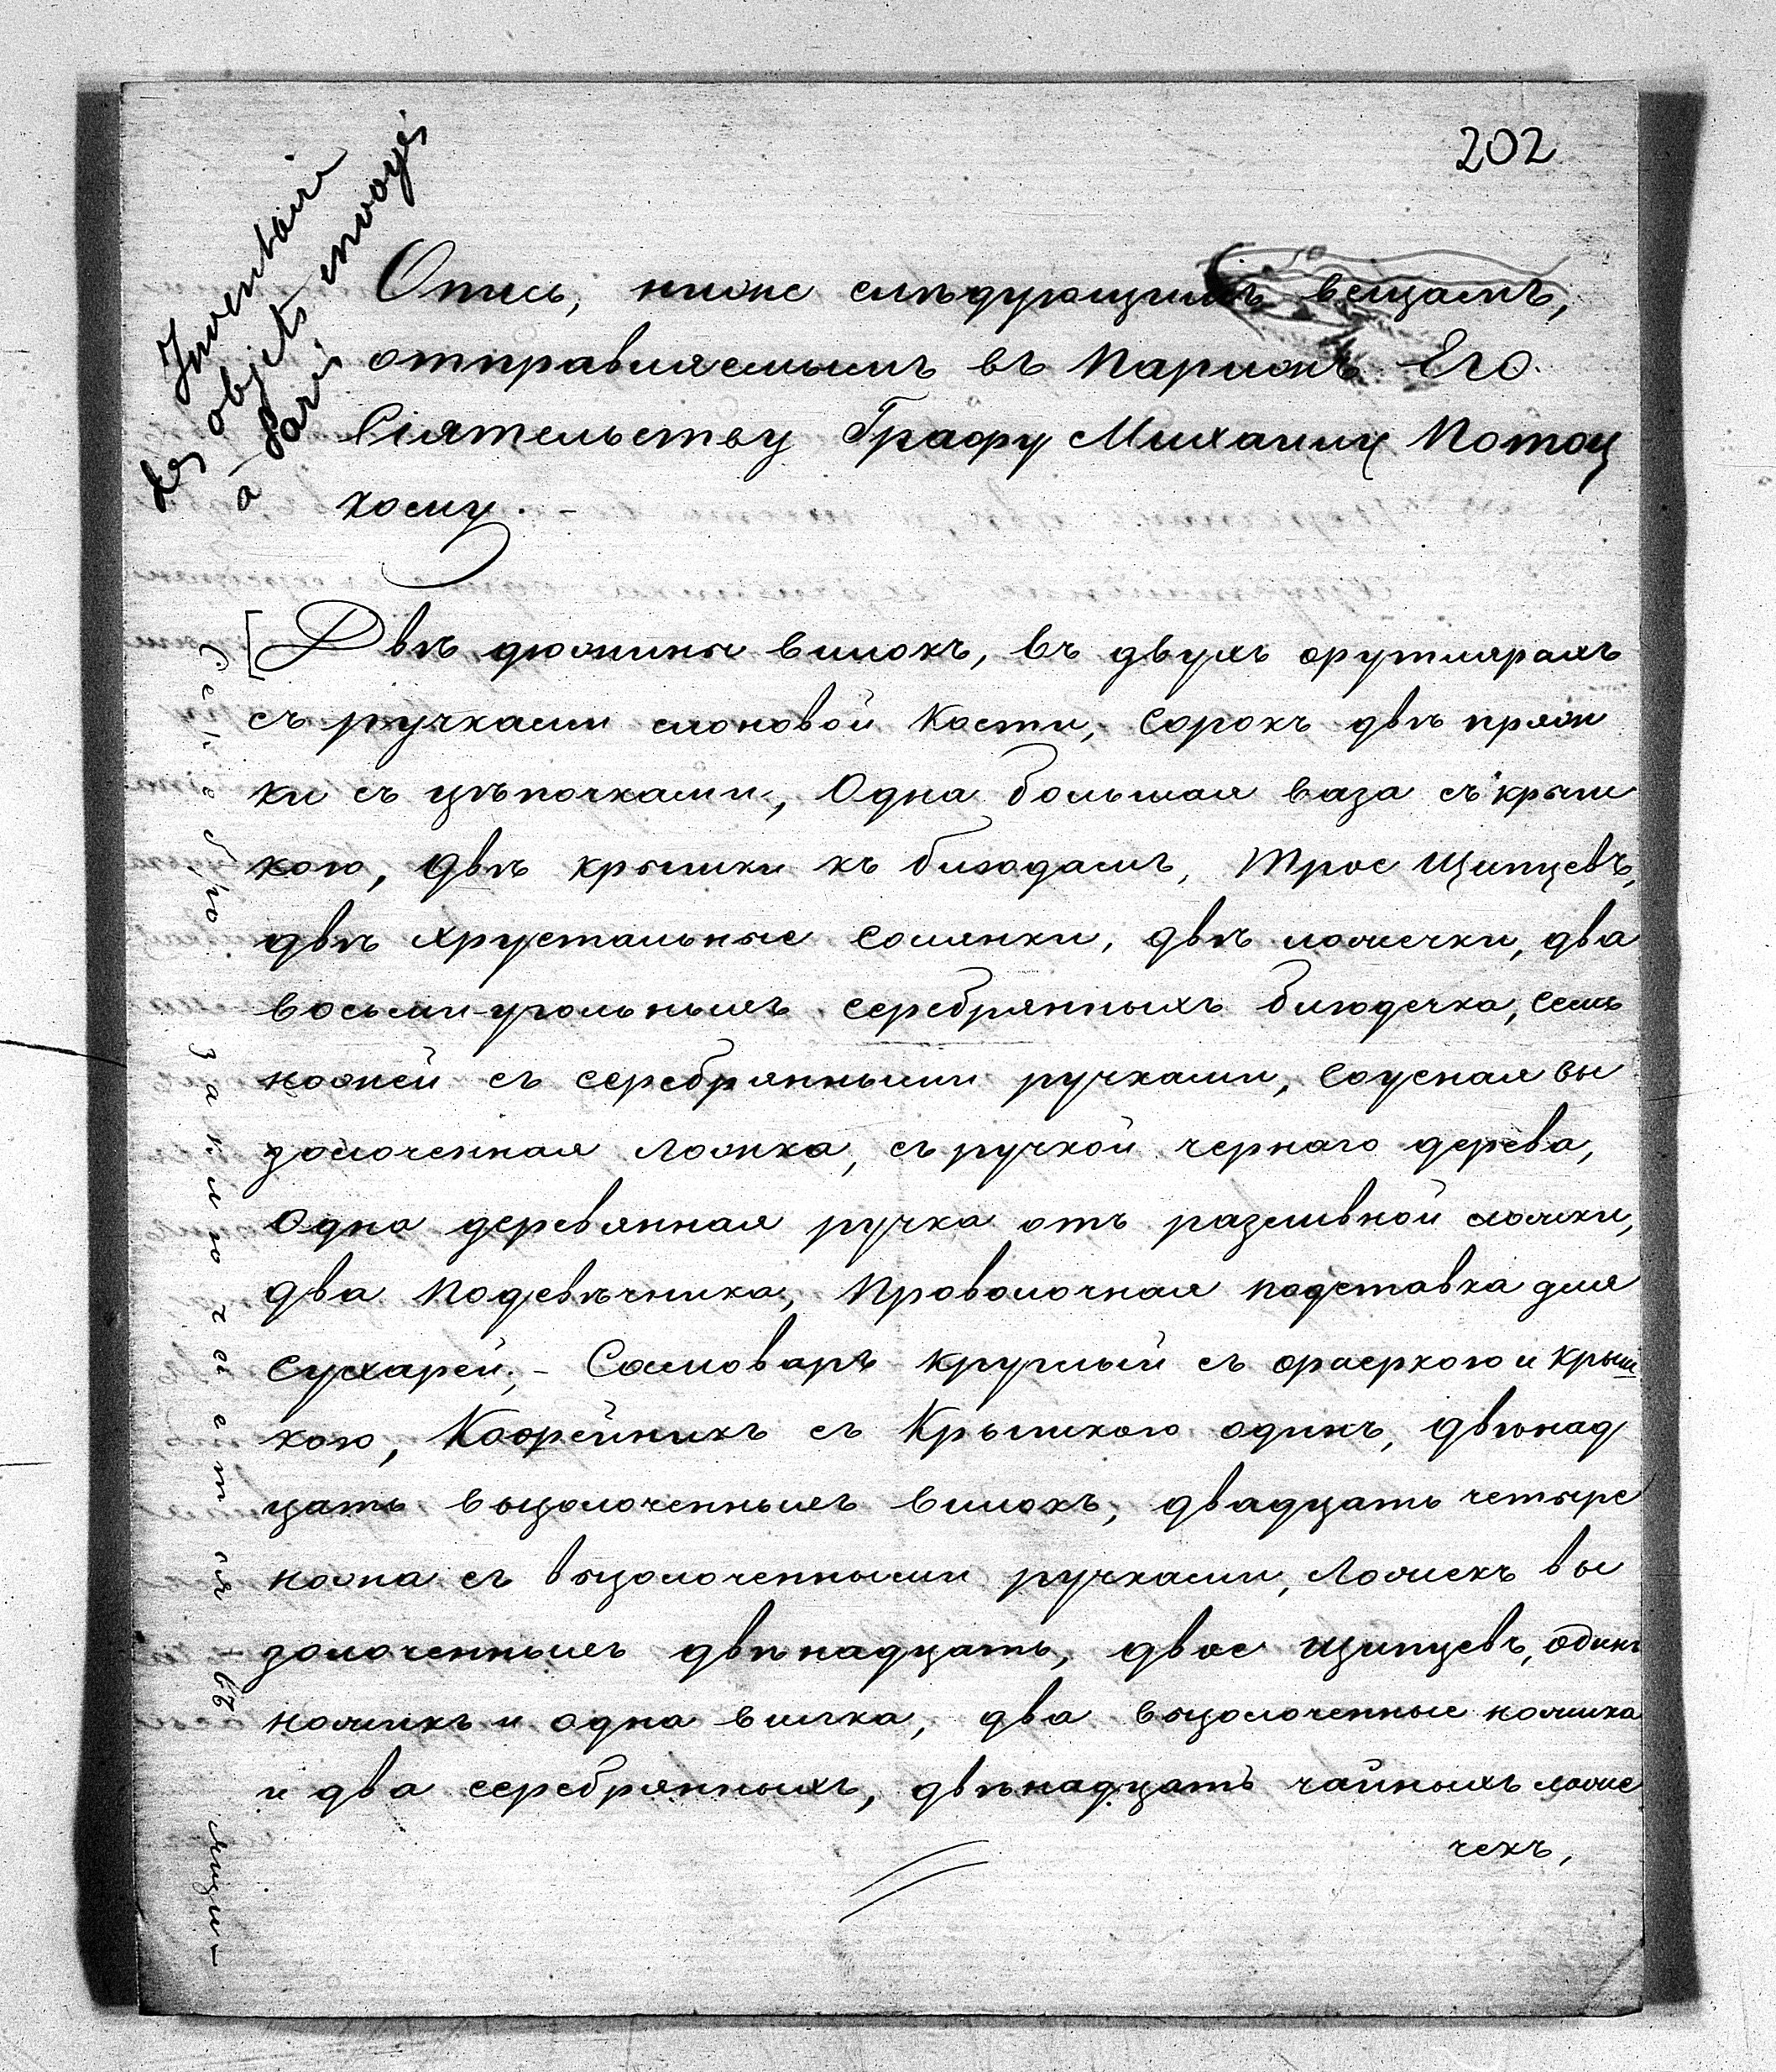 202
Inventaire
des objets envoyés
à Paris
Опись, ниже слѣдующимъ вещамъ,
отправляемымъ въ Парижъ Его
Сіятельству Графу Михаилу Потоц
кому. -
Двѣ дюжины вилокъ, въ двухъ футлярахъ
съ ручками слоновой кости, Сорокъ двѣ пряж
ки съ цѣпочками, Одна большая ваза съ крыш
кою, двѣ крышки къ блюдамъ, Трое Щипцевъ,
двѣ хрустальные Солянки, двѣ ложечки, два
восьми-угольныхъ серебрянныхъ блюдечка, семь
ножей съ серебрянными ручками, Соусная вы
золоченная Ложка, съ ручкой чернаго дерева,
Одна деревянная ручка отъ разливной ложки,
два Подсвѣчника, Проволочная подставка для
Сухарей, - Самоваръ круглый съ фаеркою и Крыш
кою, Кофейникъ съ Крышкою одинъ, двѣнад
цать вызолоченныхъ вилокъ, двадцать четыре
ножа съ вызолоченными ручками, Ложекъ вы
золоченныхъ двѣнадцать, двое щипцевъ, одинъ
ножикъ и одна вилка, два вызолоченные ножика
и два серебрянныхъ, двѣнадцать чайныхъ ложе
чекъ,
Серебро заключается въ ящи-